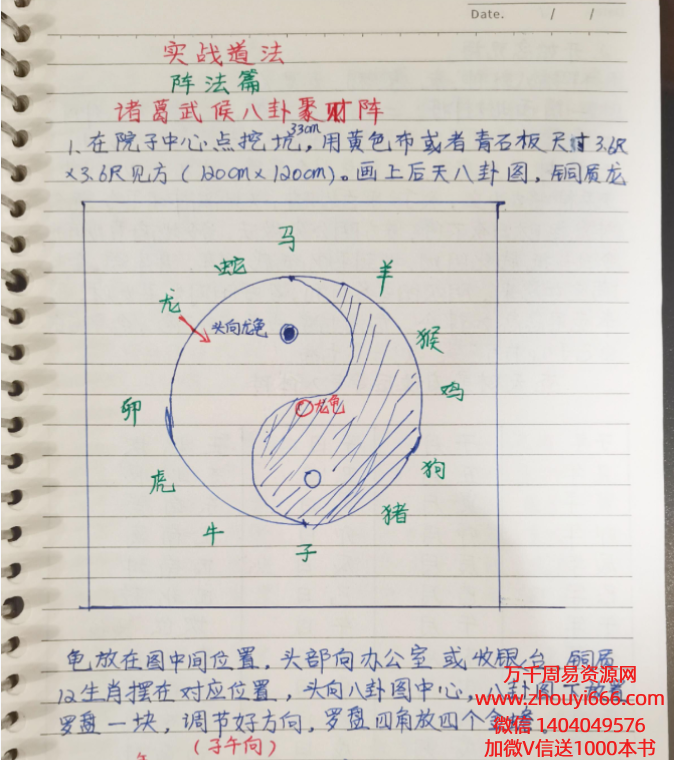 Date. / /
实战道法
阵法篇
诸葛武候八卦聚财阵
33cm
1、在院子中心点挖坑，用黄色布或者青石板尺寸3.6尺
×3.6尺见方(120cm×120cm)。画上后天八卦图，铜质龙
马
蛇 羊
龙 头向龙龟 猴
卯 龙龟 鸡
虎 狗
牛 猪
子
龟放在图中间位置，头部向办公室或收银台，铜质
12生肖摆在对应位置，头向八卦图中心，八卦图下放置
罗盘一块，调节好方向，罗盘四角放四个金
(子午向)
万千周易资源网
www.zhouyi666.com
微信 1404049576
加微V信送1000本书